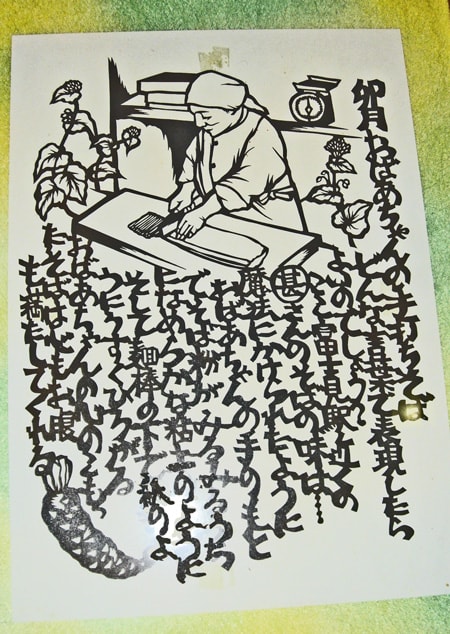 卯月 おばあちゃんの手打ちそば
どんな言葉で表現したら
よいのでしょうか
ここ富貴駅近くの
甚さんのそばの味は……
魔法にかけられたように
おばあちゃんの手のもと
でそば粉がみるみるうち
になめらかな粘土のように
そして麺棒の下で紙のよ
うにうすくひろがる
おばあちゃんの心のこもっ
たそばは心もお腹
も満たしてくれる